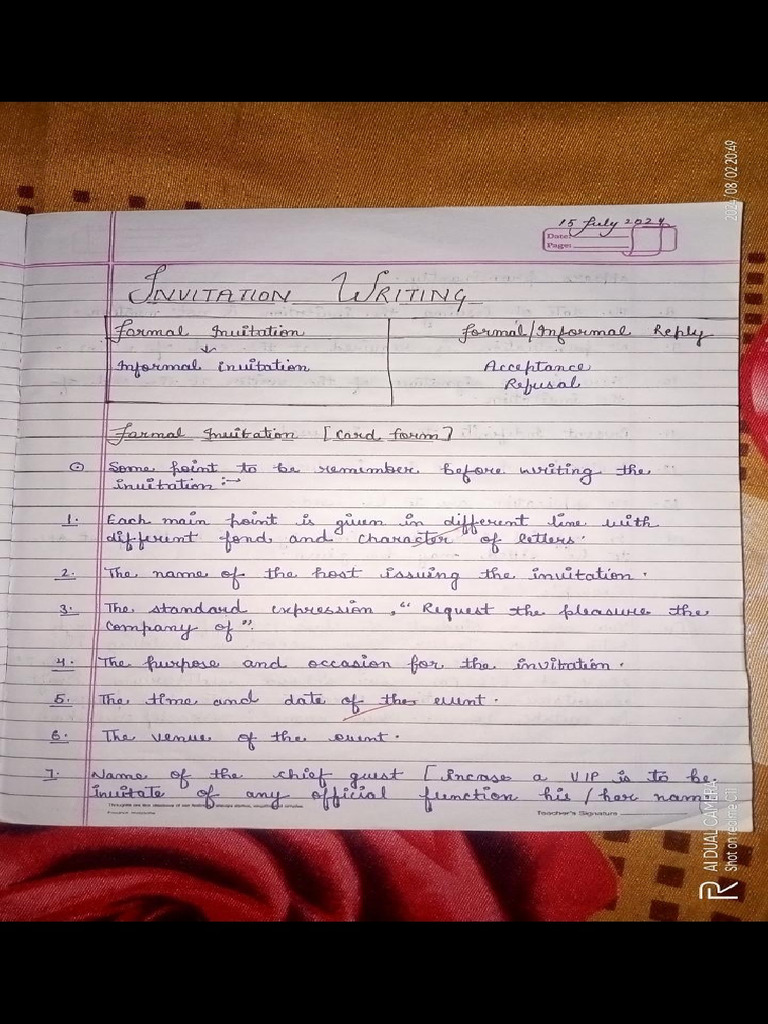 15 July 2024
Date:
Page:
INVITATION WRITING
Formal Invitation
Formal/Informal Reply
Informal invitation
Acceptance
Refusal
Formal Invitation [Card form]
Some point to be remember before writing the
invitation:-
1. Each main point is given in different line with
different fond and character of letters.
2. The name of the host issuing the invitation.
3. The standard expression, "Request the pleasure the
company of".
4. The purpose and occasion for the invitation.
5. The time and date of the event.
6. The venue of the event.
7. Name of the chief guest [incase a VIP is to be
invitate of any official function his/her name
Teacher's Signature
2024/08/02 20:49
AI DUAL CAMERA
Shot on realme C11